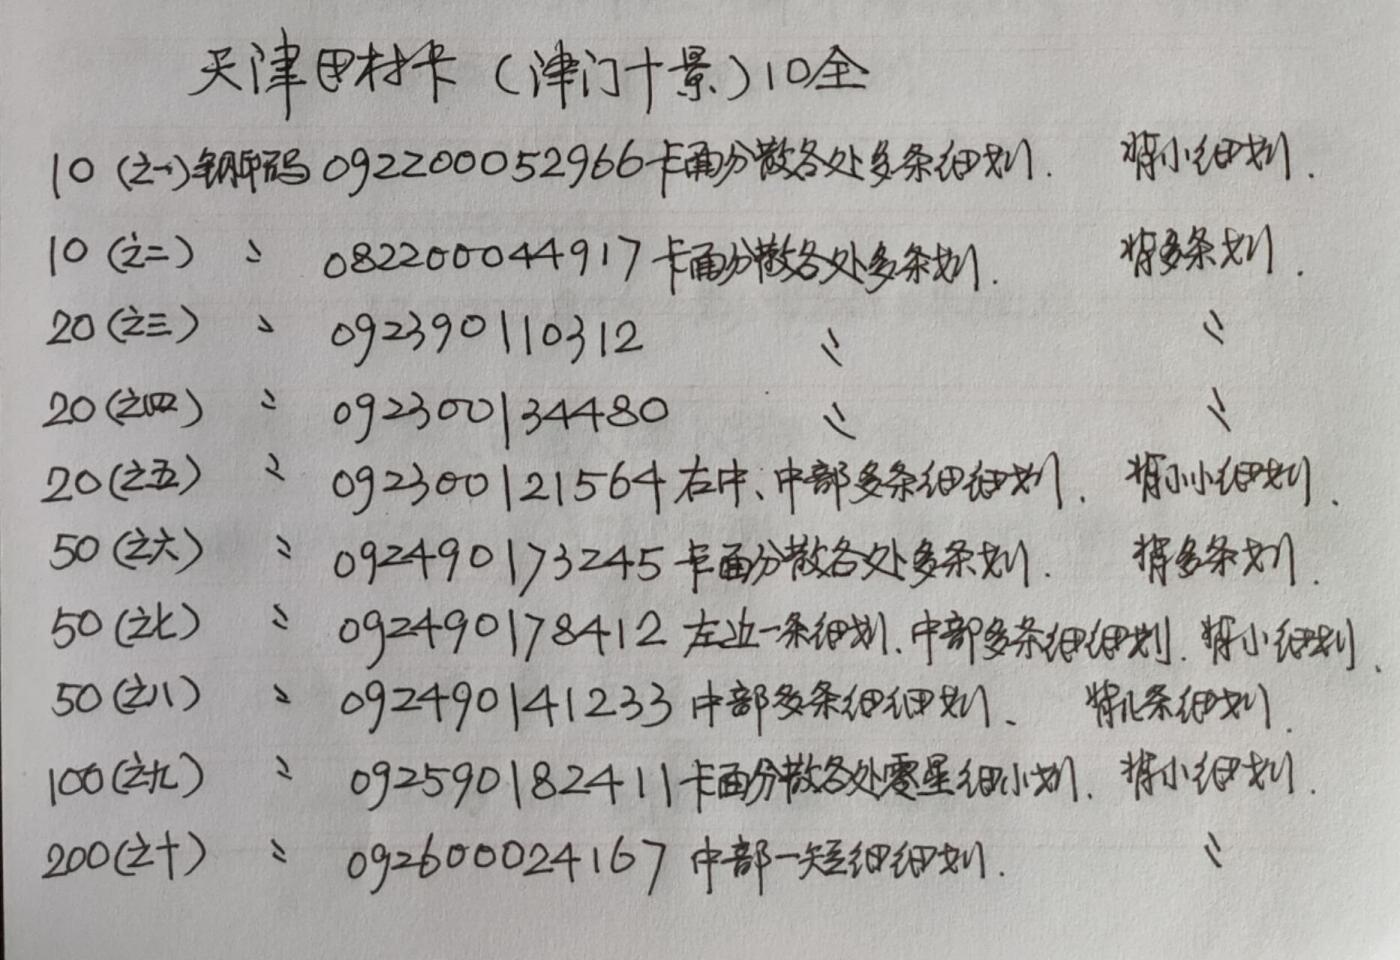 天津田村卡（津门十景）10全
10（之一）钢印码 092200052966 卡面分散各处多条细划. 背小细划.
10（之二） 〃 082200044917 卡面分散各处多条划. 背多条划.
20（之三） 〃 092390110312 〃 〃
20（之四） 〃 092300134480 〃 〃
20（之五） 〃 092300121564 右中、中部多条细细划. 背小小细划.
50（之六） 〃 092490173245 卡面分散各处多条划. 背多条划.
50（之七） 〃 092490178412 左边一条细划.中部多条细细划. 背小细划.
50（之八） 〃 092490141233 中部多条细细划、 背几条细划.
100（之九） 〃 092590182411 卡面分散各处零星细小划. 背小细划.
200（之十） 〃 092600024167 中部一短细细划. 〃